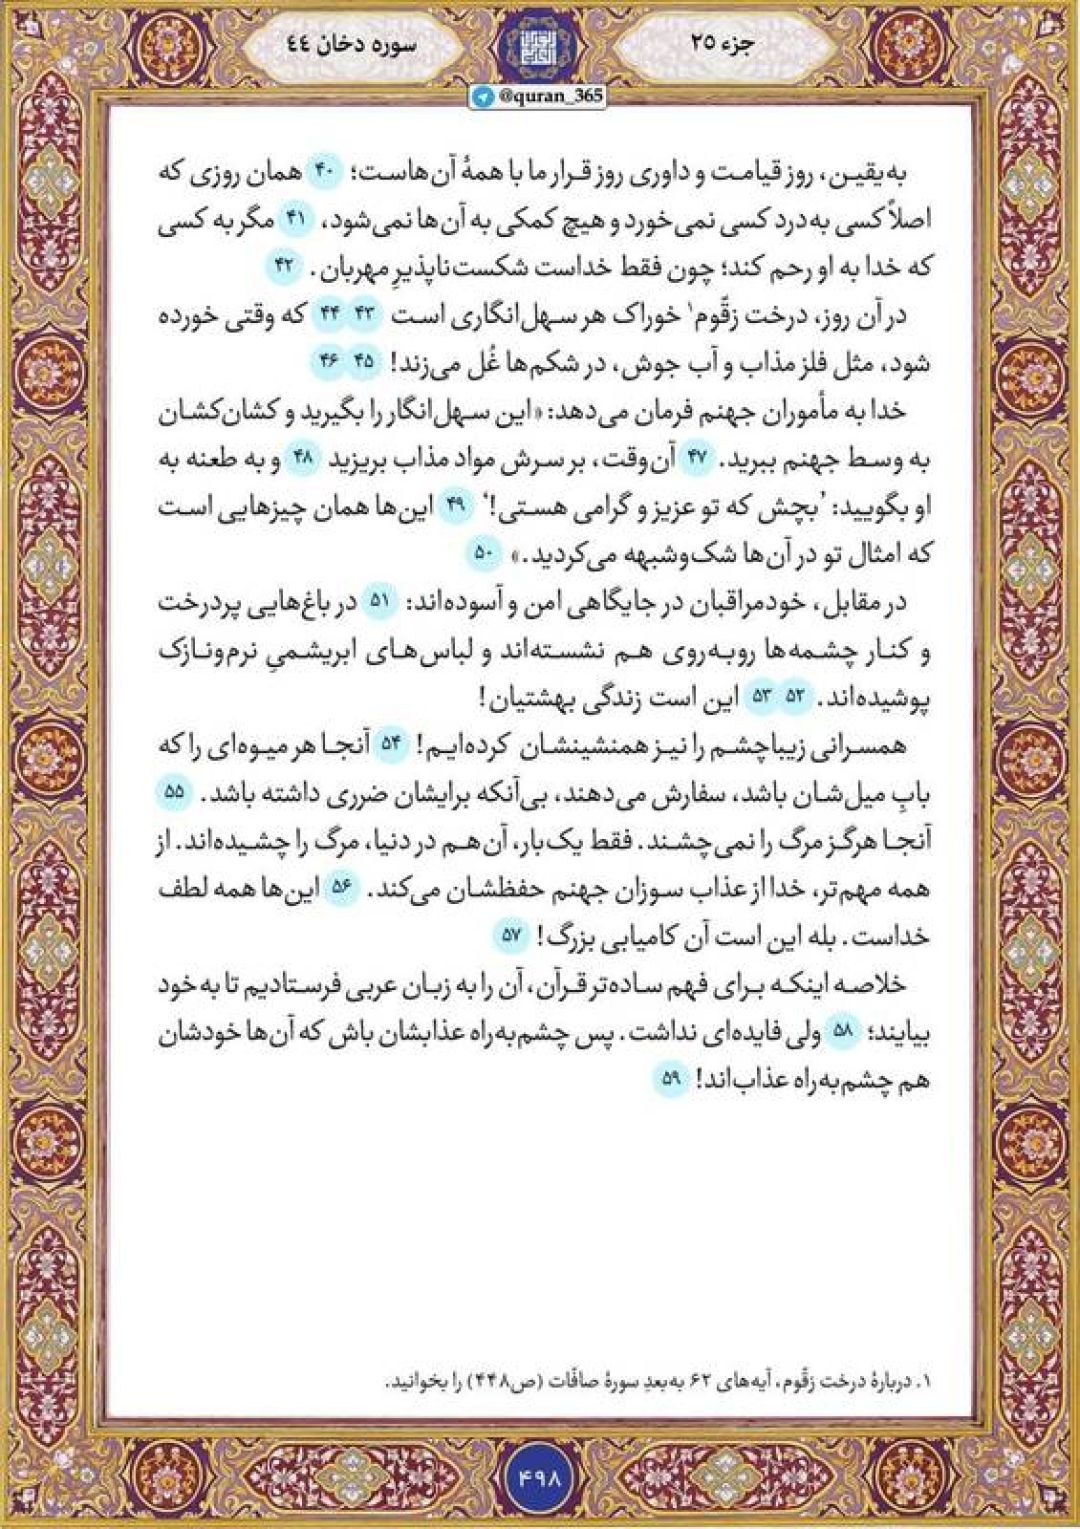 جزء ۲۵
سوره دخان ٤٤
@quran_365
به‌یقین، روز قیامت و داوری روز قرار ما با همهٔ آن‌هاست؛ ۴۰ همان روزی که
اصلاً کسی به‌درد کسی نمی‌خورد و هیچ کمکی به آن‌ها نمی‌شود، ۴۱ مگر به کسی
که خدا به او رحم کند؛ چون فقط خداست شکست‌ناپذیرِ مهربان. ۴۲
در آن روز، درخت زقّوم۱ خوراک هر سهل‌انگاری است ۴۳ ۴۴ که وقتی خورده
شود، مثل فلز مذاب و آب جوش، در شکم‌ها غُل می‌زند! ۴۵ ۴۶
خدا به مأموران جهنم فرمان می‌دهد: «این سهل‌انگار را بگیرید و کشان‌کشان
به وسط جهنم ببرید. ۴۷ آن‌وقت، بر سرش مواد مذاب بریزید ۴۸ و به طعنه به
او بگویید: ’بچش که تو عزیز و گرامی هستی!‘ ۴۹ این‌ها همان چیزهایی است
که امثال تو در آن‌ها شک‌وشبهه می‌کردید.» ۵۰
در مقابل، خودمراقبان در جایگاهی امن و آسوده‌اند: ۵۱ در باغ‌هایی پردرخت
و کنار چشمه‌ها روبه‌روی هم نشسته‌اند و لباس‌های ابریشمیِ نرم‌ونازک
پوشیده‌اند. ۵۲ ۵۳ این است زندگی بهشتیان!
همسرانی زیباچشم را نیز همنشینشان کرده‌ایم! ۵۴ آنجا هر میوه‌ای را که
بابِ میل‌شان باشد، سفارش می‌دهند، بی‌آنکه برایشان ضرری داشته باشد. ۵۵
آنجا هرگز مرگ را نمی‌چشند. فقط یک‌بار، آن‌هم در دنیا، مرگ را چشیده‌اند. از
همه مهم‌تر، خدا از عذاب سوزان جهنم حفظشان می‌کند. ۵۶ این‌ها همه لطف
خداست. بله این است آن کامیابی بزرگ! ۵۷
خلاصه اینکه برای فهم ساده‌تر قرآن، آن را به زبان عربی فرستادیم تا به خود
بیایند؛ ۵۸ ولی فایده‌ای نداشت. پس چشم‌به‌راه عذابشان باش که آن‌ها خودشان
هم چشم‌به‌راه عذاب‌اند! ۵۹
۱. دربارهٔ درخت زقّوم، آیه‌های ۶۲ به‌بعدِ سورهٔ صافّات (ص۴۴۸) را بخوانید.
۴۹۸